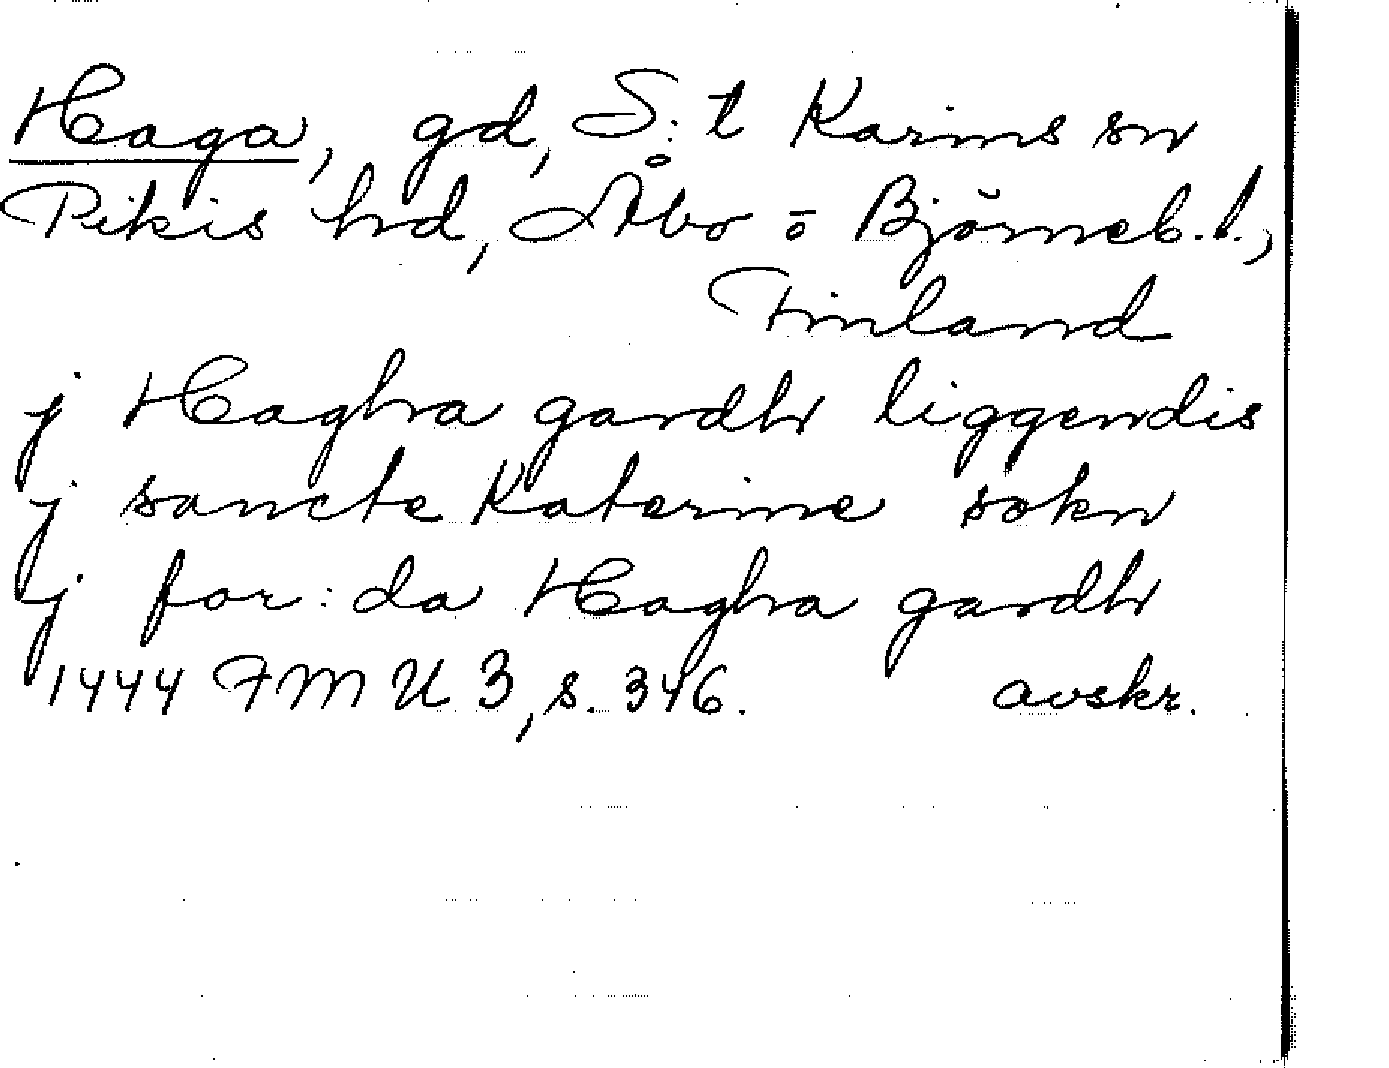 Haga, gd, S:t Karins sn
Pikis hd, Åbo o Björneb. l.,
Finland
j Haghra gardhr liggendis
j sancte Katerine sokn
j for:da Haghra gardhr
1444 FMU 3, s. 346. avskr.